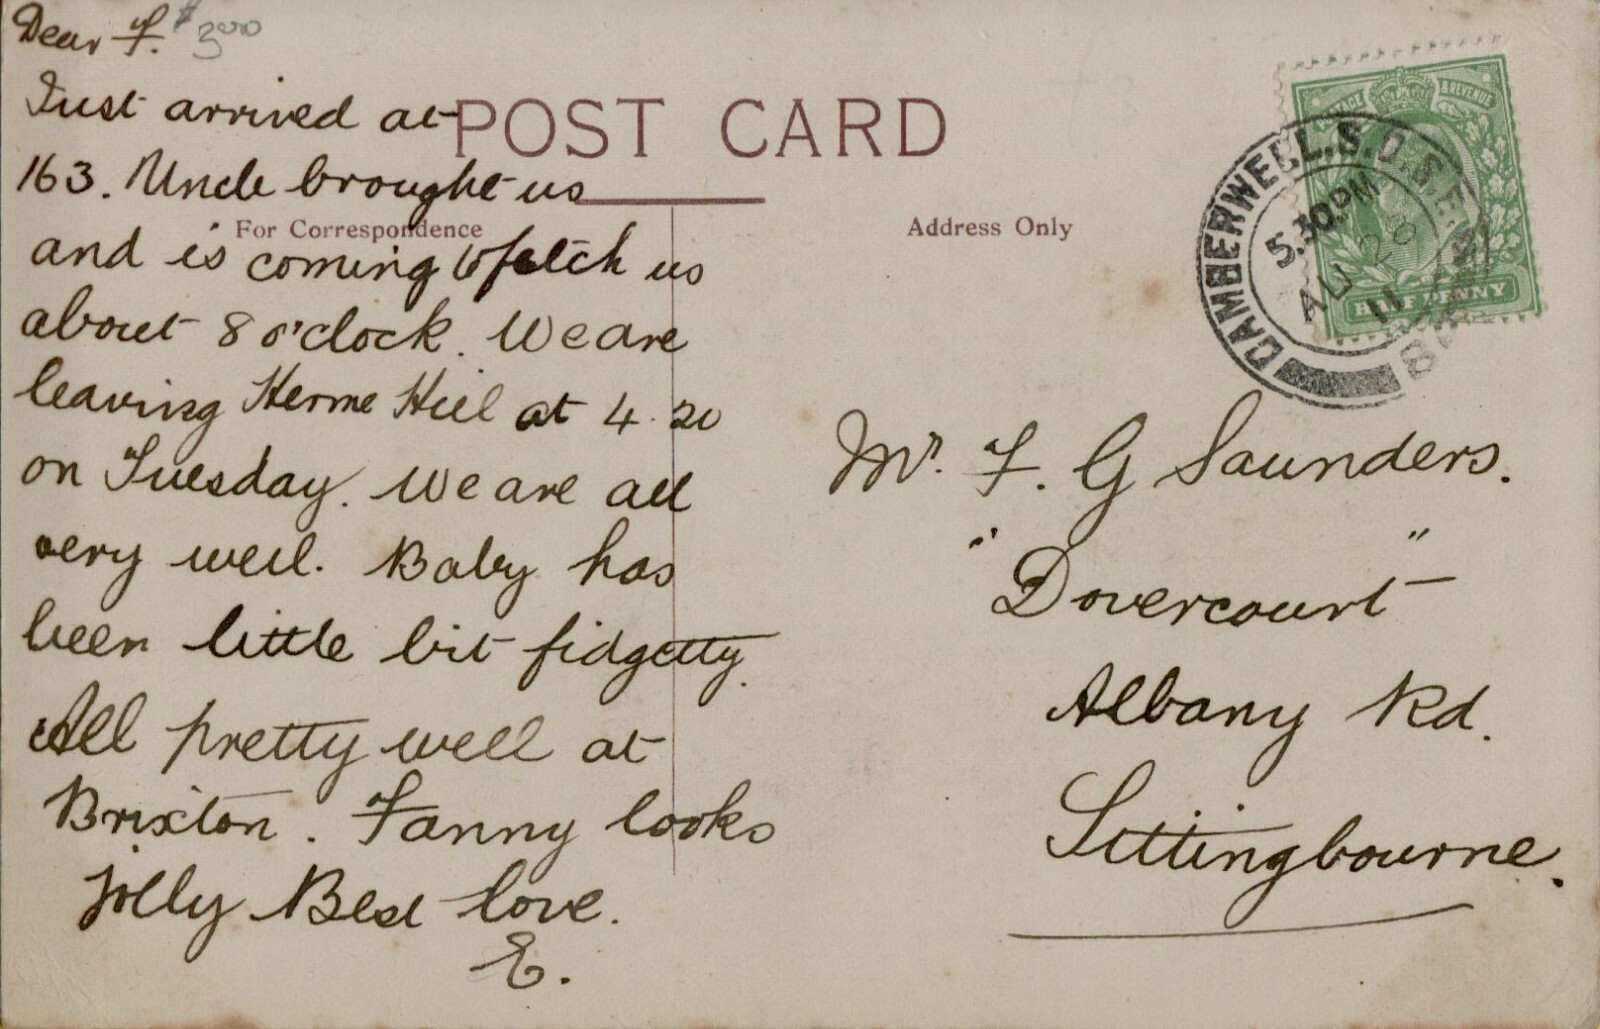 Dear F.
Just arrived at
163. Uncle brought us
and is coming to fetch us
about 8 o'clock. We are
leaving Herne Hill at 4.20
on Tuesday. We are all
very well. Baby has
been little bit fidgetty.
All pretty well at
Brixton. Fanny looks
jolly Best love.
E.
POST CARD
For Correspondence
Address Only
POSTAGE & REVENUE
HALF PENNY
CAMBERWELL.S.O.S.E.
5.30.PM
AU 26
11
Mr. F. G Saunders.
"Dovercourt"
Albany Rd.
Sittingbourne.